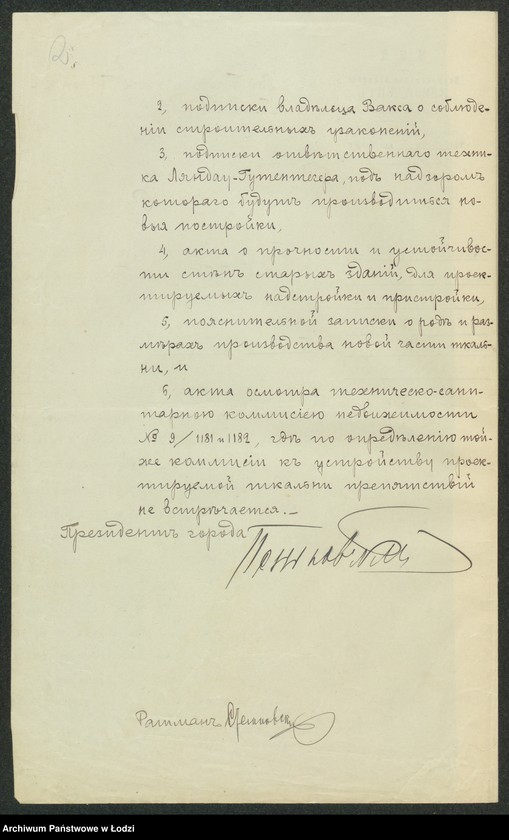 2.
2, подписки владѣльца Вакса о соблюде-
ніи строительныхъ узаконеній,
3, подписки отвѣтственнаго техни-
ка Ляндау-Гутентегера, подъ надзоромъ
котораго будутъ производиться но-
выя постройки,
4, акта о прочности и устойчивос-
ти стѣнъ старыхъ зданій, для проек-
тируемыхъ надстройки и пристройки,
5, пояснительной записки о родѣ и раз-
мѣрахъ производства новой части ткаль-
ни, и
6, акта осмотра техническо-сани-
тарною коммисіею недвижимости
№ 9/1181 и 1182, гдѣ по опредѣленію той-
же коммисіи къ устройству проек-
тируемой ткальни препятствій
не встрѣчается.—
Президентъ города
Ратманъ
Archiwum Państwowe w Łodzi